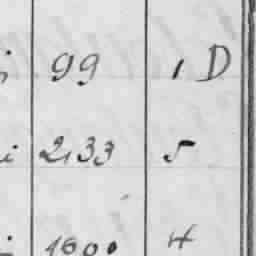 99 1 D
2133 5
1600 4